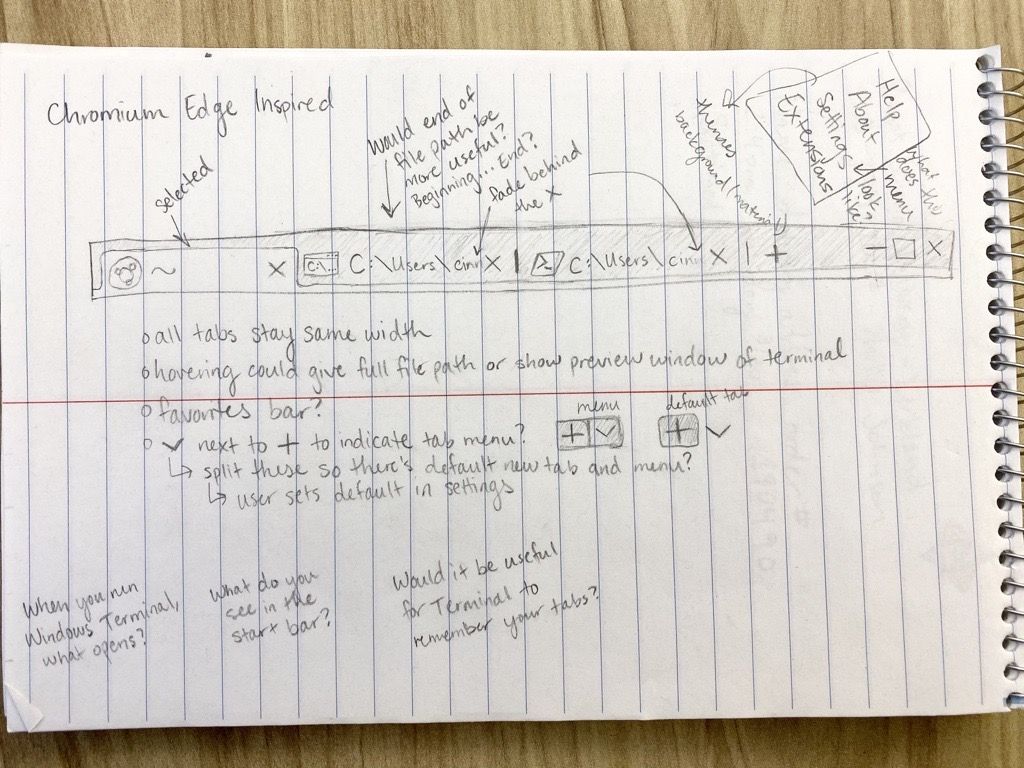 Chromium Edge Inspired
selected
Would end of
file path be
more useful?
Beginning... End?
fade behind
the X
themes
background (material)
Extensions
Settings
About
Help
what
does the
menu
look
like?
~ X C:\.. C:\Users\cinn X | >_ C:\Users\cinn X | + — □ X
o all tabs stay same width
o hovering could give full file path or show preview window of terminal
o favorites bar?
menu
default tab
o ✓ next to + to indicate tab menu?
↳ split these so there's default new tab and menu?
↳ user sets default in settings
When you run
Windows Terminal,
what opens?
What do you
see in the
start bar?
Would it be useful
for Terminal to
remember your tabs?